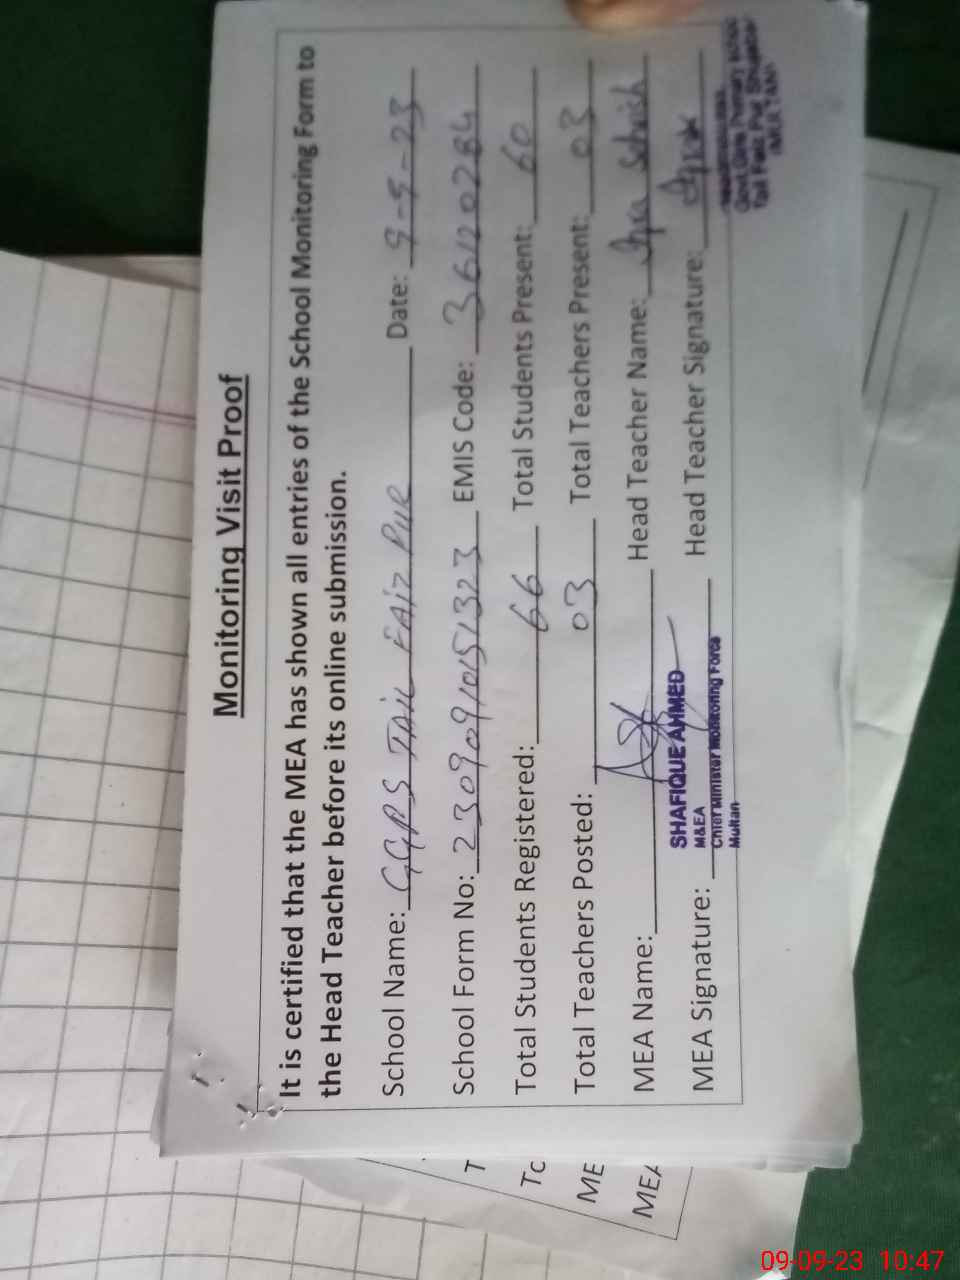 Monitoring Visit Proof
It is certified that the MEA has shown all entries of the School Monitoring Form to
the Head Teacher before its online submission.
School Name: GGPS TAIL FAIZ PUR Date: 9-9-23
School Form No: 23090910151323 EMIS Code: 36120284
Total Students Registered: 66 Total Students Present: 60
Total Teachers Posted: 03 Total Teachers Present: 03
MEA Name: Head Teacher Name: Iqra
SHAFIQUE AHMED
M&EA
Chief Minister Monitoring Force
Multan
MEA Signature: Head Teacher Signature: Iqra
Govt. Girls Primary School
Tail Faiz Pur
MULTAN
T
Tc
ME
MEA
09-09-23 10:47